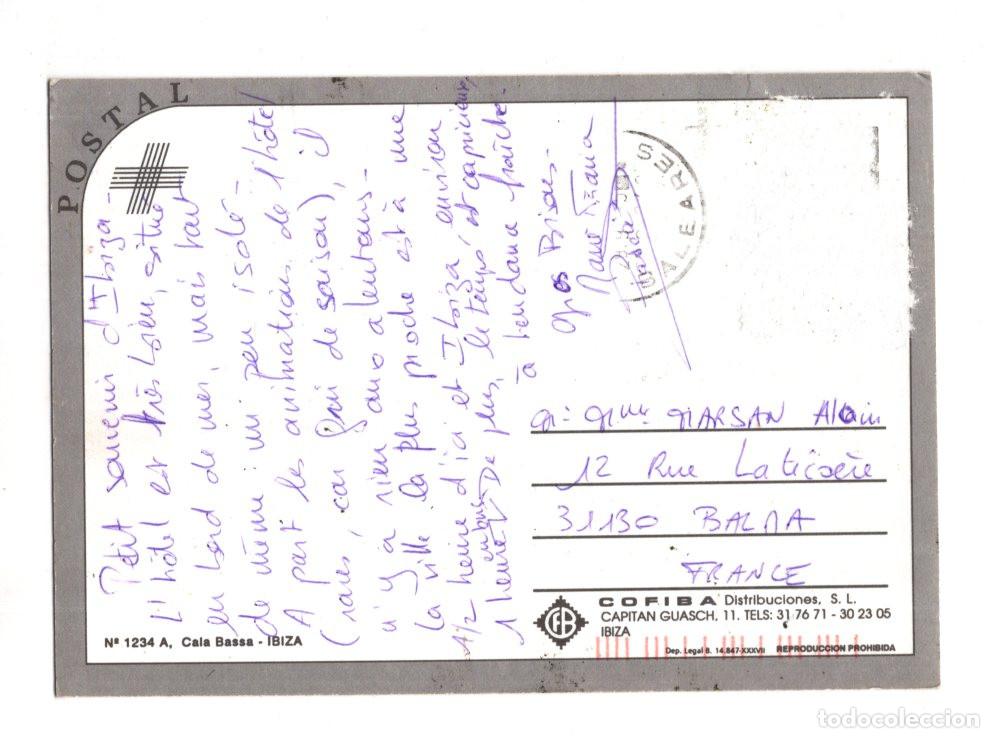 POSTAL
Petit souvenir d'Ibiza -
L'hôtel est très bien, situé
en bord de mer, mais tout
de même un peu isolé
A part les animations de l'hôtel
(rares, car fin de saison), il
n'y a rien aux alentours -
la ville la plus proche est à une
1/2 heure d'ici et Ibiza environ
1 heure en bus De plus, le temps est capricieux
à tendance fraîche -
Gros Bisous -
BALEARES
Mr Mme MARSAN Alain
12 Rue
31130 BALMA
FRANCE
Nº 1234 A, Cala Bassa - IBIZA
COFIBA Distribuciones, S. L.
CAPITAN GUASCH, 11. TELS: 31 76 71 - 30 23 05
IBIZA
Dep. Legal B. 14.847-XXXVII REPRODUCCION PROHIBIDA
todocoleccion